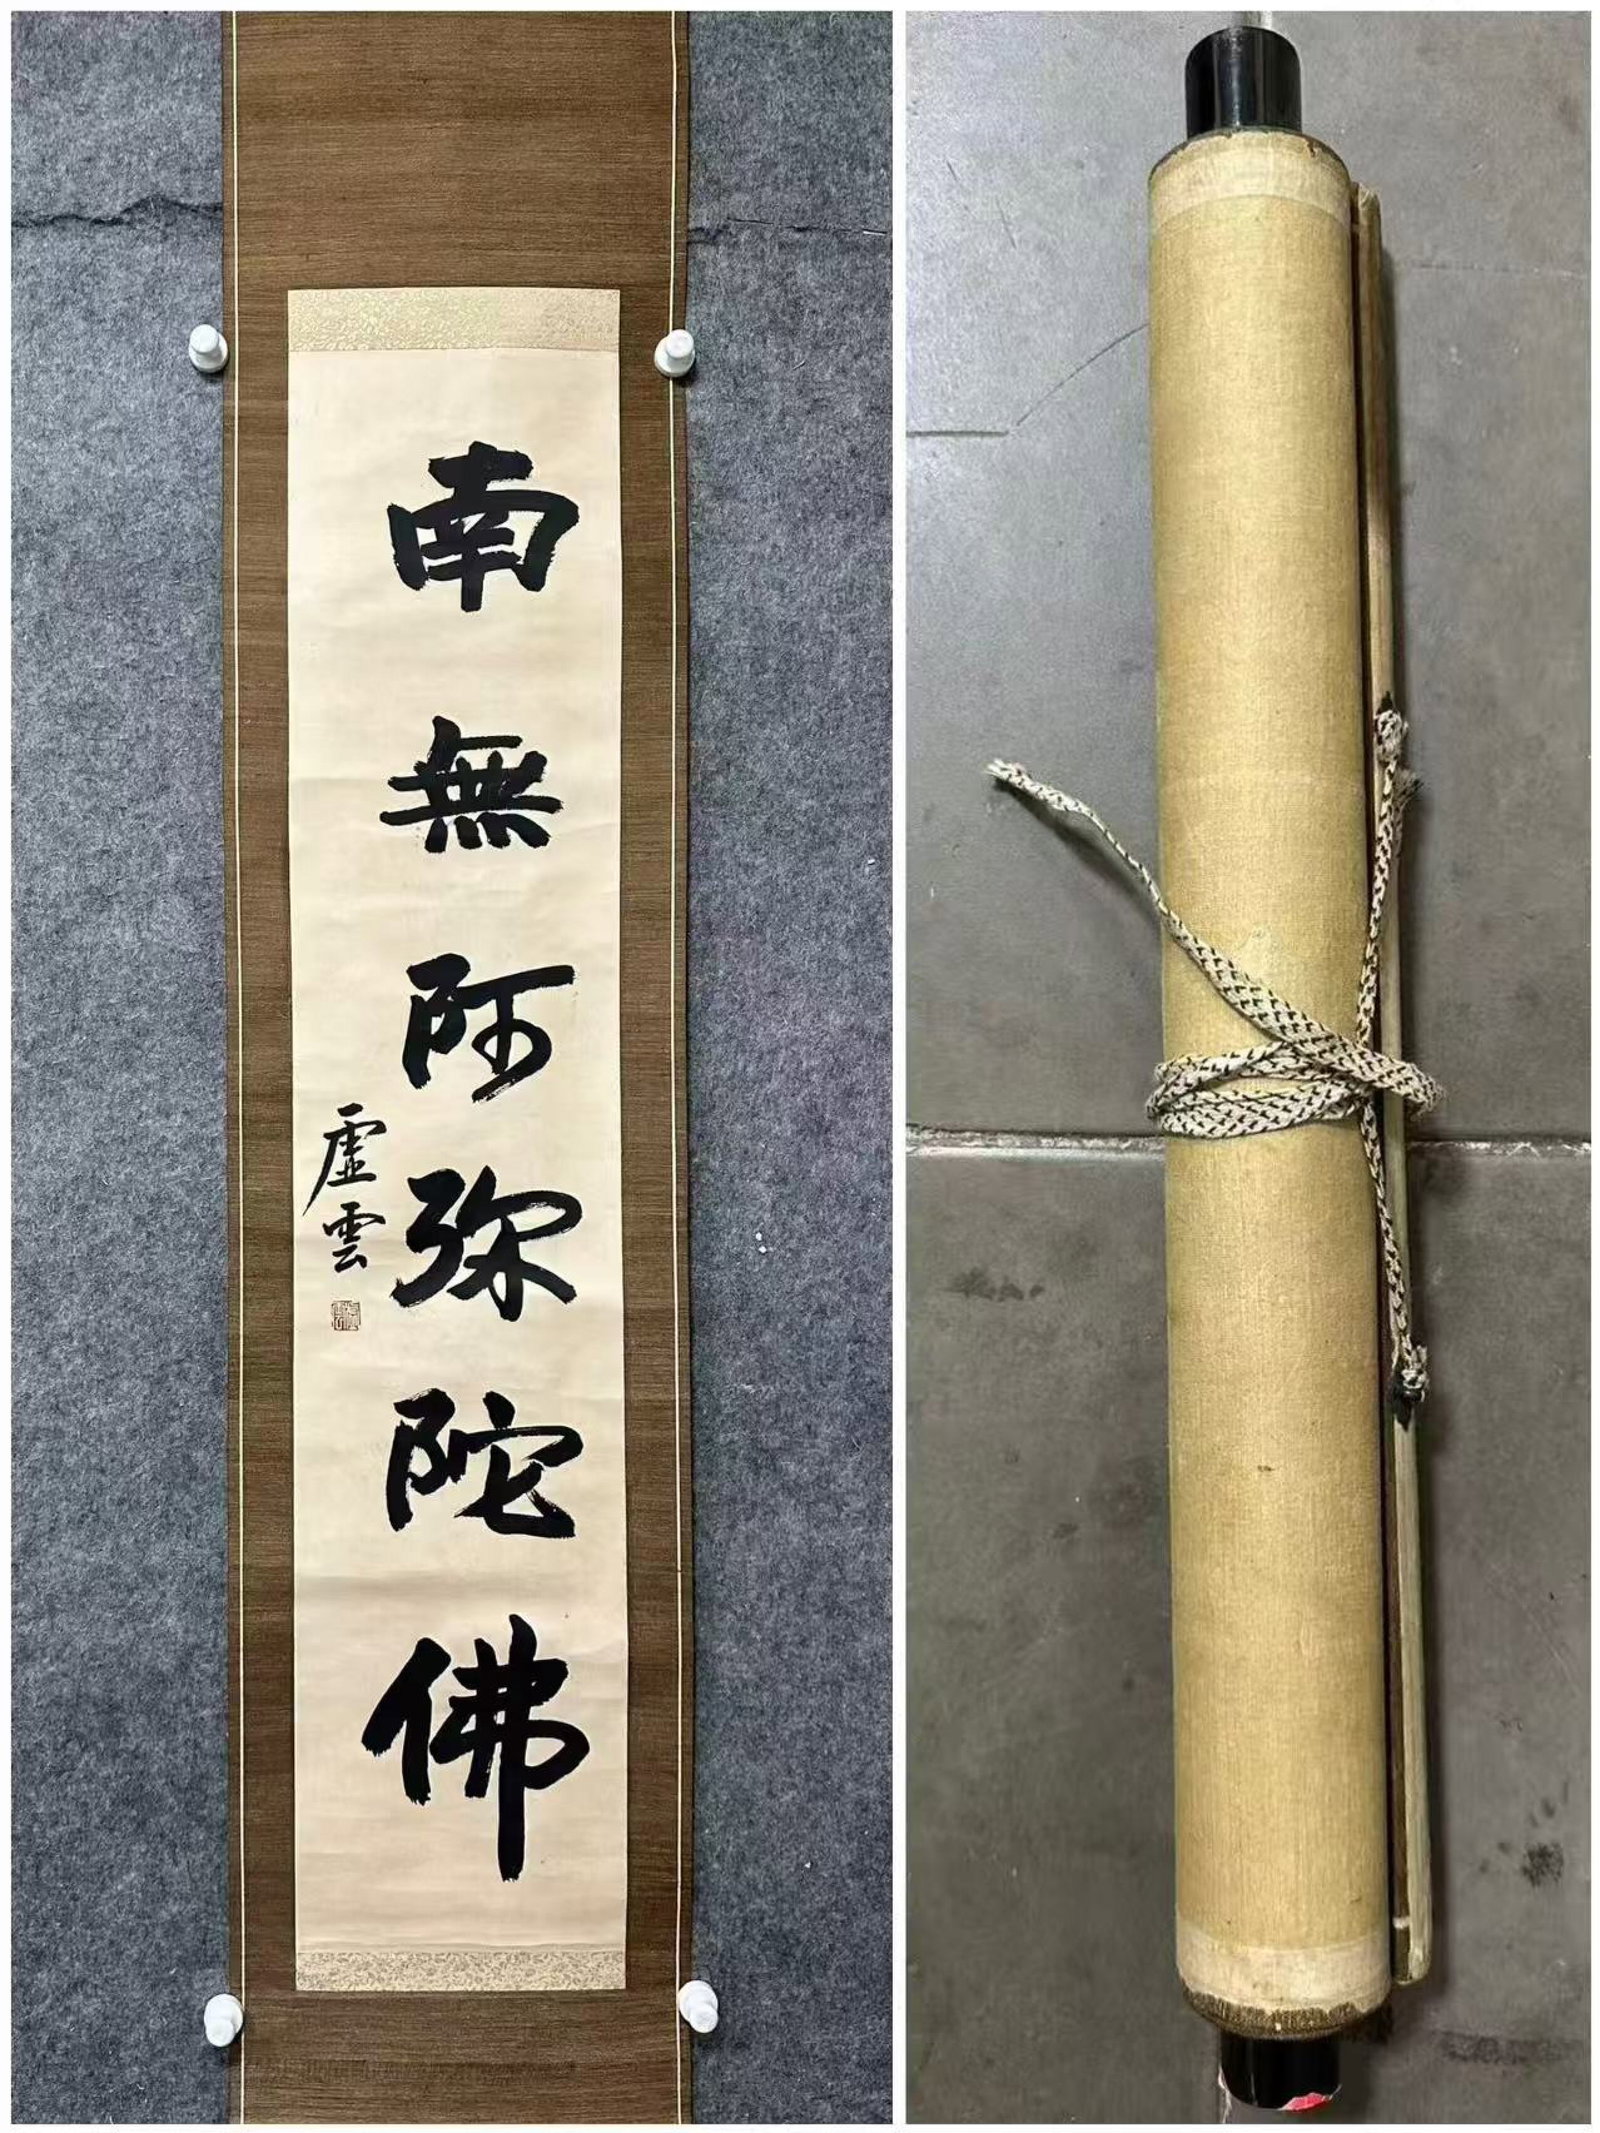 南無阿弥陀佛
虛雲